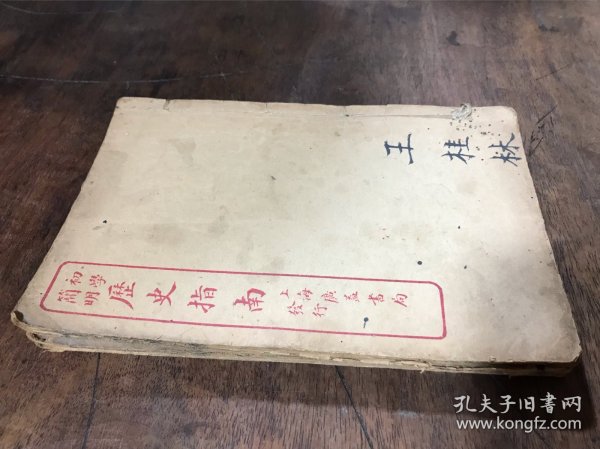 王桂林
初學
簡明
歷史指南
上海廣益書局
發行
孔夫子旧书网
www.kongfz.com